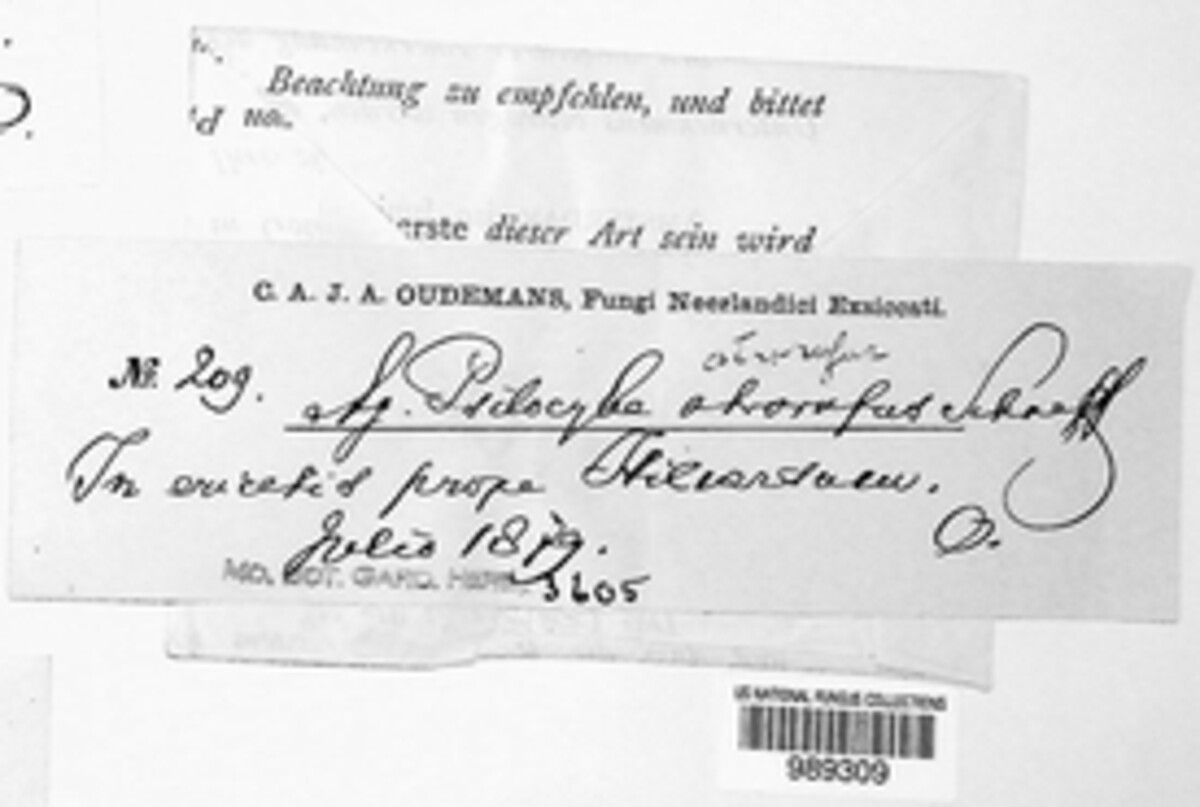 Beachtung zu empfehlen, und bittet
erste dieser Art sein wird
C. A. J. A. OUDEMANS, Fungi Neerlandici Exsiccati.
atrorufus
№ 209. Ag. Psilocybe atrorufus Schaeff
In ericetis prope Hilversum.
Julio 1879.
O.
MO. BOT. GARD. HERB.
3605
US NATIONAL FUNGUS COLLECTIONS
989309